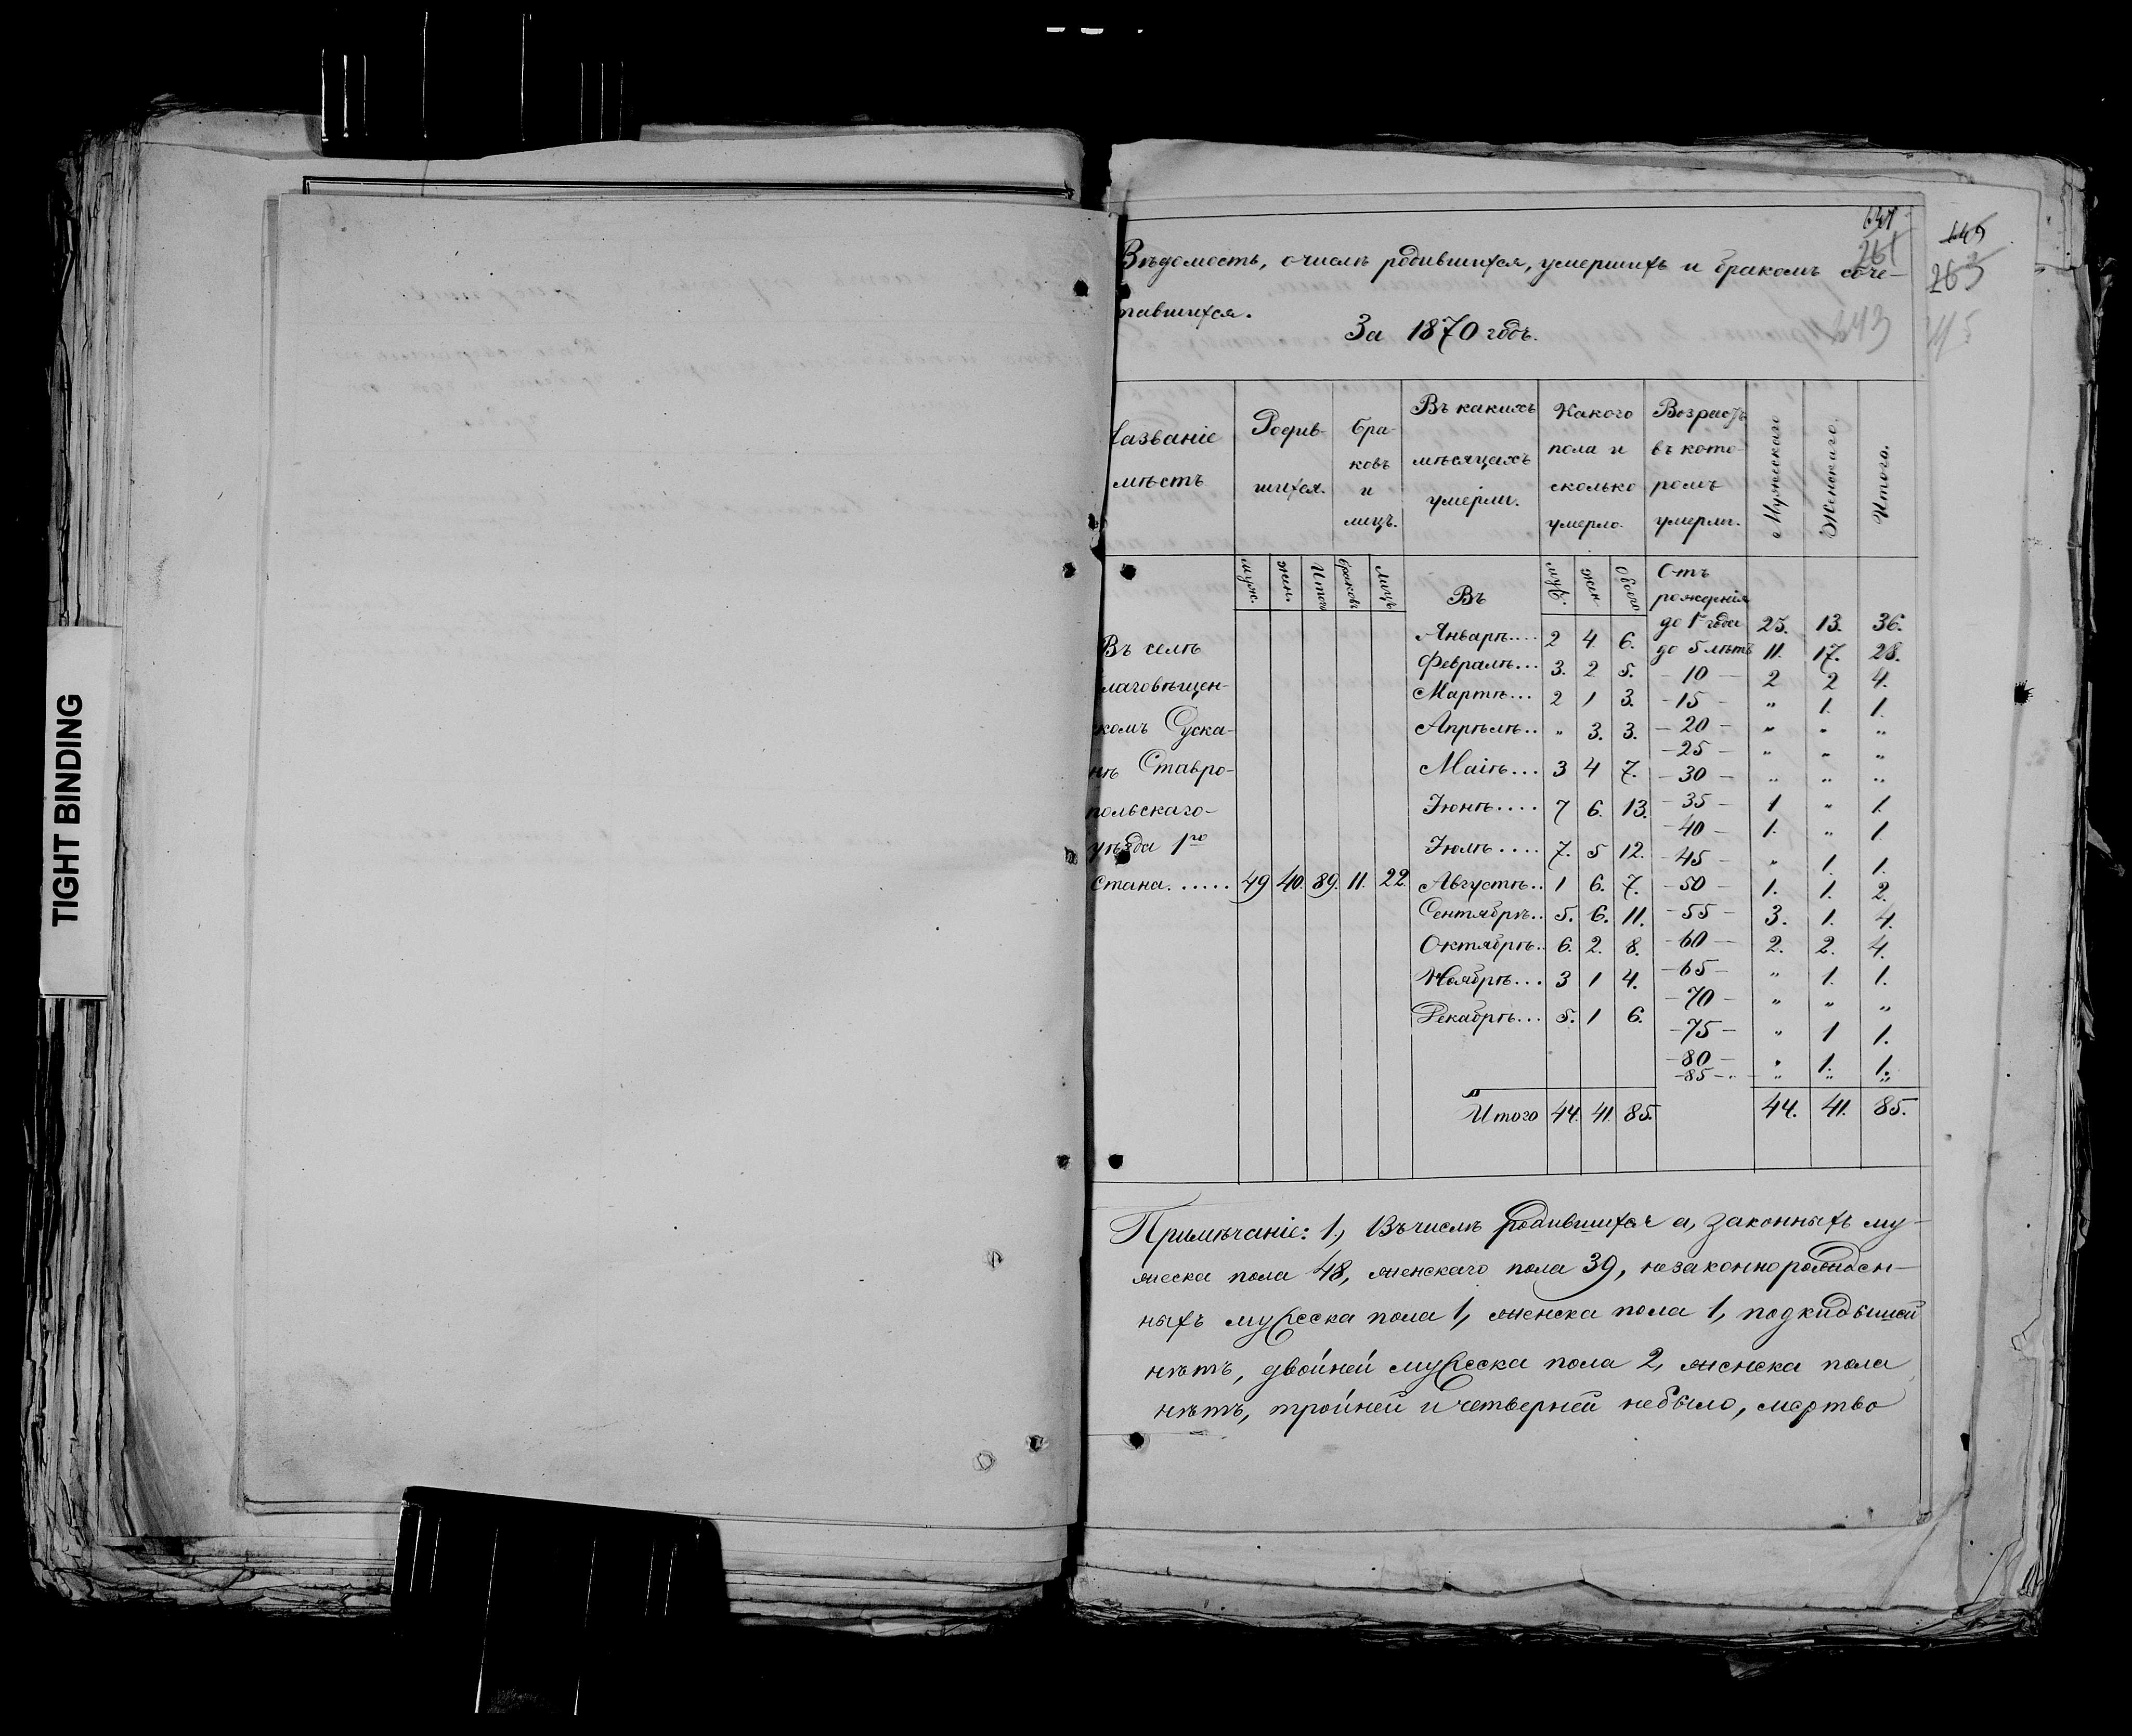 TIGHT BINDING
641
261
145
263
Вѣдомость, о числѣ родившихся, умершихъ и бракомъ соче-
тавшихся.
За 1870 годъ.
243
115
Названіе мѣстъ | Родив-шихся. | Бра-ковъ и лицъ. | Въ какихъ мѣсяцахъ умерли. | Какого пола и сколько умерло. | Возрастъ въ кото-ромъ умерли. | Мужескаго | Женскаго. | Итого.
муж. | жен. | Итого | браковъ | лицъ | Въ | муж. | жен | Обоего | Отъ рожденія
до 1го года 23. 13. 36.
Январѣ.... 2 4 6.
до 5 лѣтъ 11. 17. 28.
Въ селѣ
Февралѣ... 3. 2 5.
- 10 - 2 2 4.
лаговѣщен-
Мартѣ... 2 1 3.
- 15 - " 1. 1.
скомъ Суска-
Апрѣлѣ.. " 3. 3.
- 20 - " " "
- 25 - " " "
нѣ Ставро-
Маіѣ... 3 4 7.
- 30 - " " "
польскаго-
Іюнѣ.... 7 6. 13.
- 35 - 1 " 1.
- 40 - 1. " 1
уѣзда 1го
Іюлѣ.... 7. 5 12.
- 45 - " 1. 1.
Стана...... 49 40. 89. 11. 22.
Августѣ.. 1 6. 7.
- 50 - 1. 1. 2.
Сентябрѣ.. 5. 6. 11.
- 55 - 3. 1. 4.
Октябрѣ.. 6. 2. 8.
- 60 - 2. 2. 4.
Ноябрѣ... 3 1 4.
- 65 - " 1. 1.
- 70 - " " "
Декабрѣ... 5. 1 6.
- 75 - " 1 1.
- 80 - " 1. 1.
- 85 - " " "
Итого 44. 41. 85. 44. 41. 85.
Примѣчаніе: 1., Въ числѣ родившихся а, законныхъ му-
жеска пола 48, женскаго пола 39, незаконнорожден-
ныхъ мужеска пола 1, женска пола 1, подкидышей
нѣтъ, двойней мужеска пола 2, женска пола
нѣтъ, тройней и четверней небыло, мертво